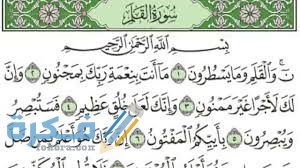 سُورَةُ القَلَمِ
بِسْمِ اللَّهِ الرَّحْمَٰنِ الرَّحِيمِ
نٓ وَالْقَلَمِ وَمَا يَسْطُرُونَ ١ مَا أَنتَ بِنِعْمَةِ رَبِّكَ بِمَجْنُونٍ ٢ وَإِنَّ
لَكَ لَأَجْرًا غَيْرَ مَمْنُونٍ ٣ وَإِنَّكَ لَعَلَىٰ خُلُقٍ عَظِيمٍ ٤ فَسَتُبْصِرُ
وَيُبْصِرُونَ ٥ بِأَييِّكُمُ الْمَفْتُونُ ٦ إِنَّ رَبَّكَ هُوَ أَعْلَمُ بِمَن ضَلَّ
فكرة